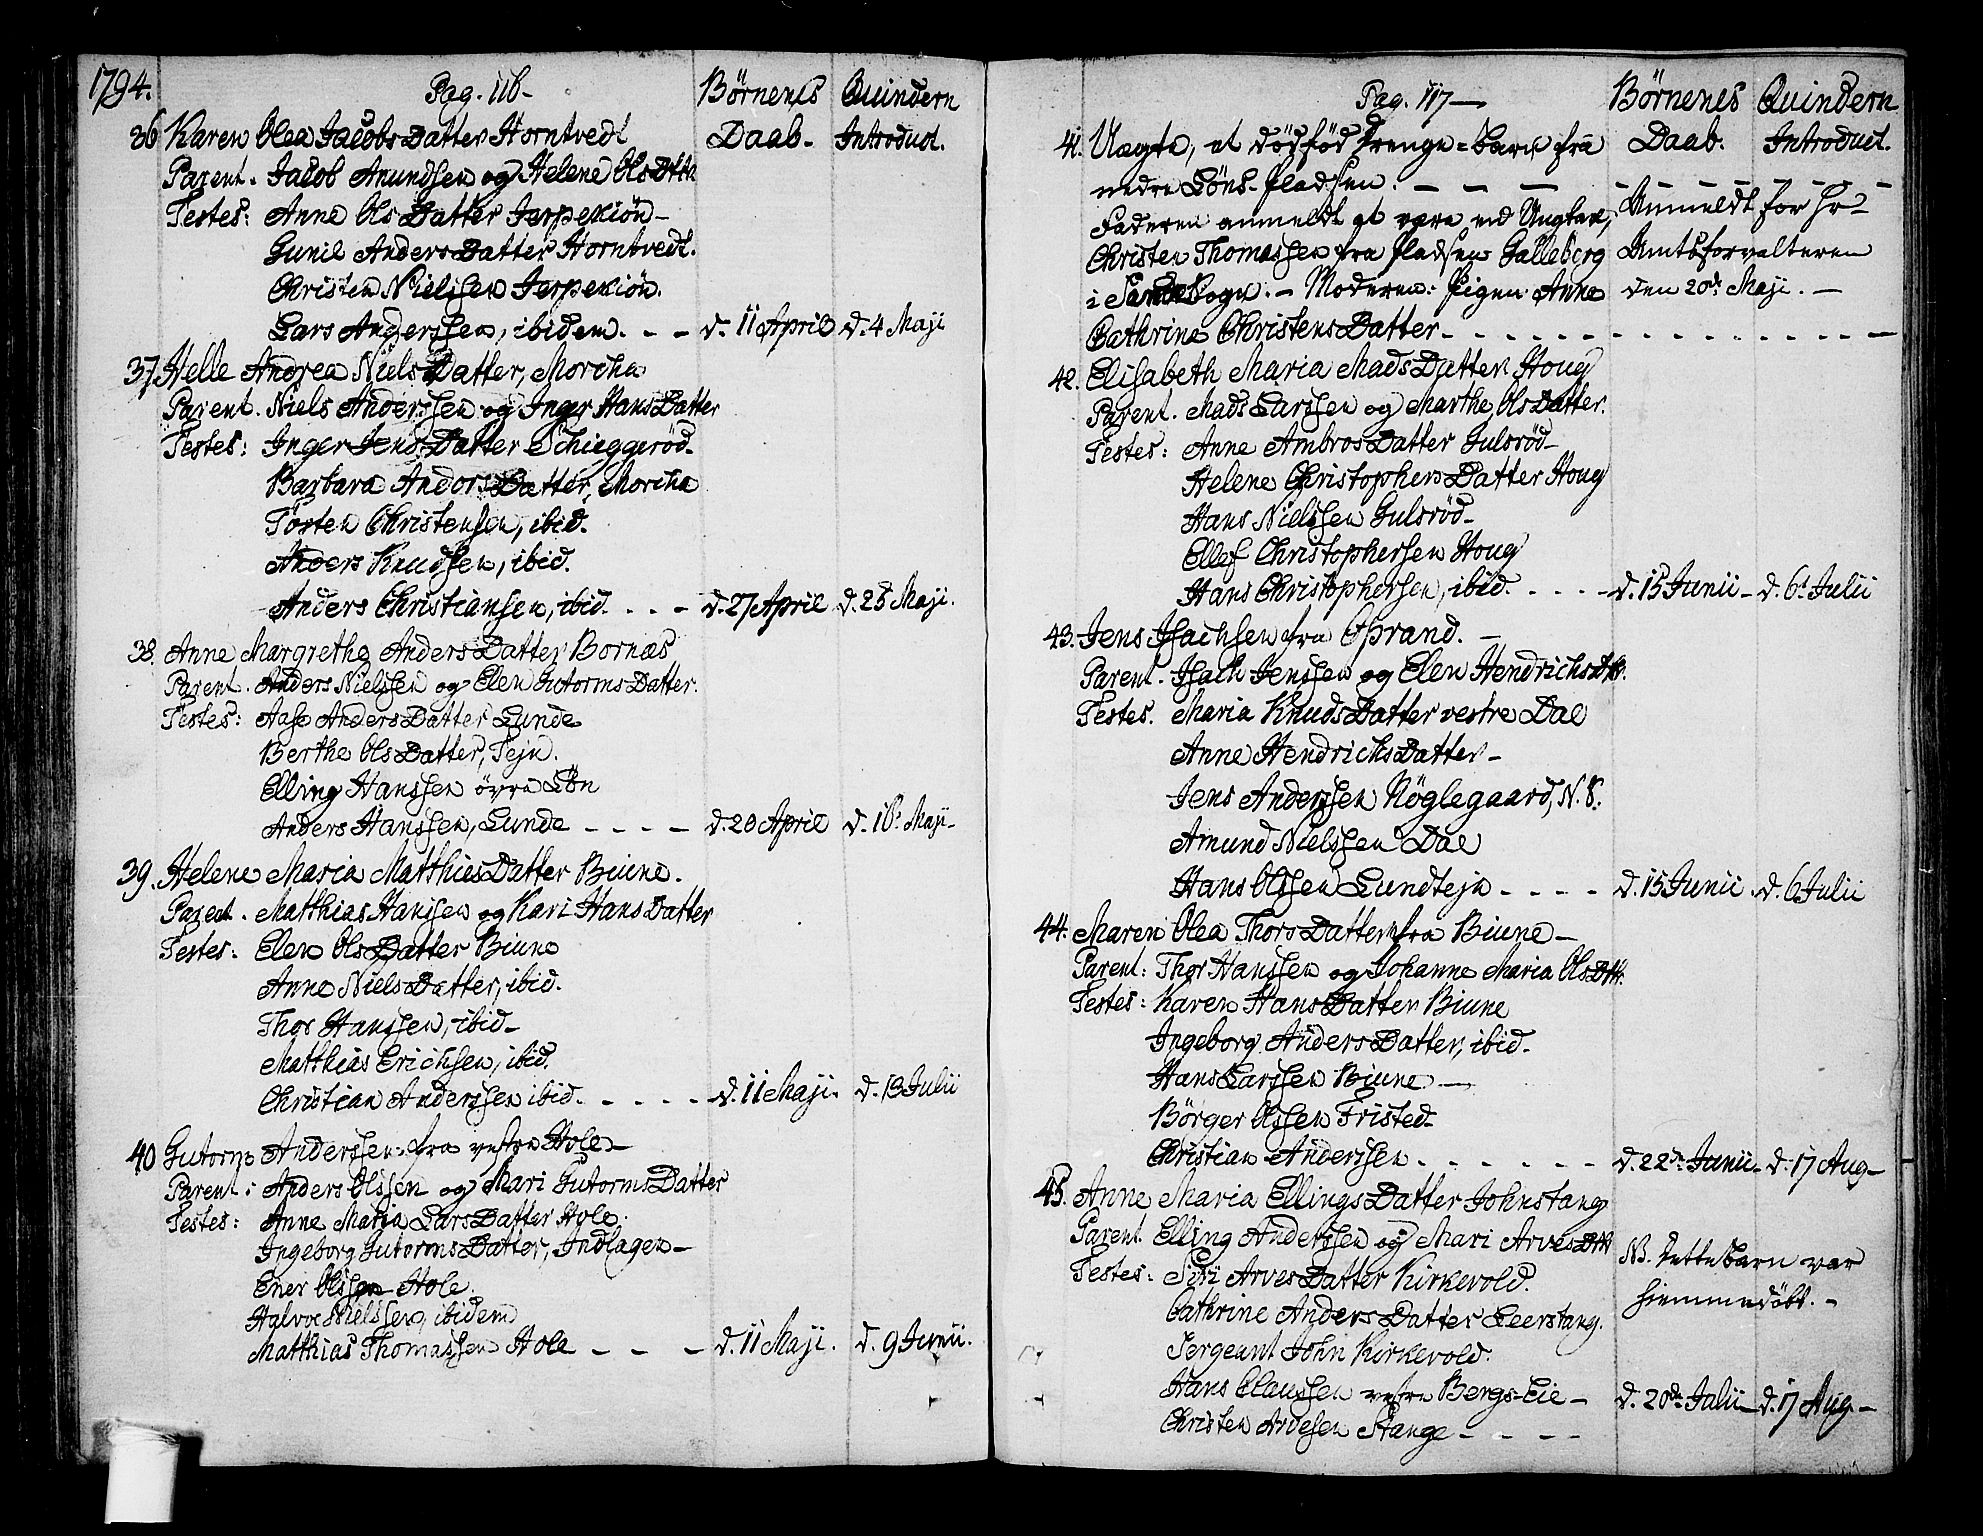 1794.
Pag. 116-
Börnenes Daab.
Quindern Introduct.
36 Karen Olea Jacobs Datter Horntvedt
Parent. Jacob Amundsen og Helene Ols Dttr
Testes: Anne Ols Datter Jerpekiön-
Gunil Anders Datter Horntvedt.
Christen Nielssen Jerpekiön.
Lars Anderssen, ibidem. - - d. 11 April d. 4 Maji
37. Helle Andrea Niels Datter, Morcha
Parent. Niels Anderssen og Inger Hans Datter
Testes: Inger Jens Datter Schieggeröd.
Barbara Anders Datter, Morcha
Torsten Christensen, ibid.
Anders Knudsen, ibid.
Anders Christiansen, ibid. - - - d. 27 April d. 25 Maji.
38. Anne Margrethe Anders Datter Bornæs
Parent. Anders Nielssen og Elen Gutorms Datter.
Testes: Aase Anders Datter Lunde
Berthe Ols Datter, Tejn.
Elling Hanssen övre Lön
Anders Hanssen, Lunde - - - - d. 20 April d. 16. Maji-
39. Helene Maria Matthies Datter Biune.
Parent. Matthias Hanssen og Kari Hans Datter
Testes: Elen Ols Datter Biune
Anne Niels Datter, ibid.
Thor Hanssen, ibid-
Matthias Erichsen, ibid.
Christian Anderssen ibid. - - - - d. 11 Maji. d. 13 Julii
40 Gutorm Anderssen fra vestre Hole-
Parent: Anders Olssen og Mari Gutorms Datter
Testes: Anne Maria Lars Datter Hole.
Ingeborg Gutorms Datter, Indlagen-
Ener Olssen Hole.
Halvor Nielssen, ibidem
Matthias Thomassen Hole - - - d. 11 Maji. d. 9 Junii.
Pag. 117-
Börnenes Daab.
Quindern Introduct.
41. Uægte, et dödfød Drenge-barn fra
nedre Löns-Pladsen. - - -
Faderen anmeldt at være end Ungkarl, Anmeldt for Hr
Christen Thomassen fra Pladsen Galleberg Amtsforvalteren
i Sande Sogn. - Moderen: Pigen Anne den 20de Maji. -
Cathrine Christens Datter - - - - - - - - - - - -
42. Elisabeth Maria Mads Datter Houg
Parent. Mads Larssen og Marthe Ols Datter.
Testes: Anne Ambros Datter Gulsröd-
Helene Christophers Datter Houg
Hans Nielssen Gulsröd-
Ellef Christophersen Houg
Hans Christophersen, ibid. - - - - d. 15 Junii - d. 6t Julii
43. Jens Isachsen fra Oprand. -
Parent. Isach Jenssen og Elen Hendrichs Dttr.
Testes. Maria Knuds Datter vestre Dal
Anne Hendrichs Datter-
Jens Anderssen Nöglegaard, N. 8.
Amund Nielssen Dal
Hans Olssen Lundtejn - - - - d. 15 Junii. d. 6 Julii
44. Maren Olea Thors Datter fra Biune-
Parent: Thor Hanssen og Johanne Maria Ols Dttr.
Testes: Karen Hans Datter Biune
Ingeborg Anders Datter, ibid-
Hans Larssen Biune -
Börger Olssen Fristed-
Christian Anderssen - - - - - - d. 22de Junii - d. 17 Aug-
45. Anne Maria Ellings Datter Johnstang
Parent. Elling Anderssen og Mari Arves Dttr NB. Dette Barn var
Testes: Siri Arves Datter Kirkevold. hiemmedöbt. -
Cathrine Anders Datter Leerstang.
Sergeant John Kirkevold.
Hans Claussen vestre Bergs-Eie - d. 20de Julii - d. 17 Aug -
Christen Arvesen Stange - - - -